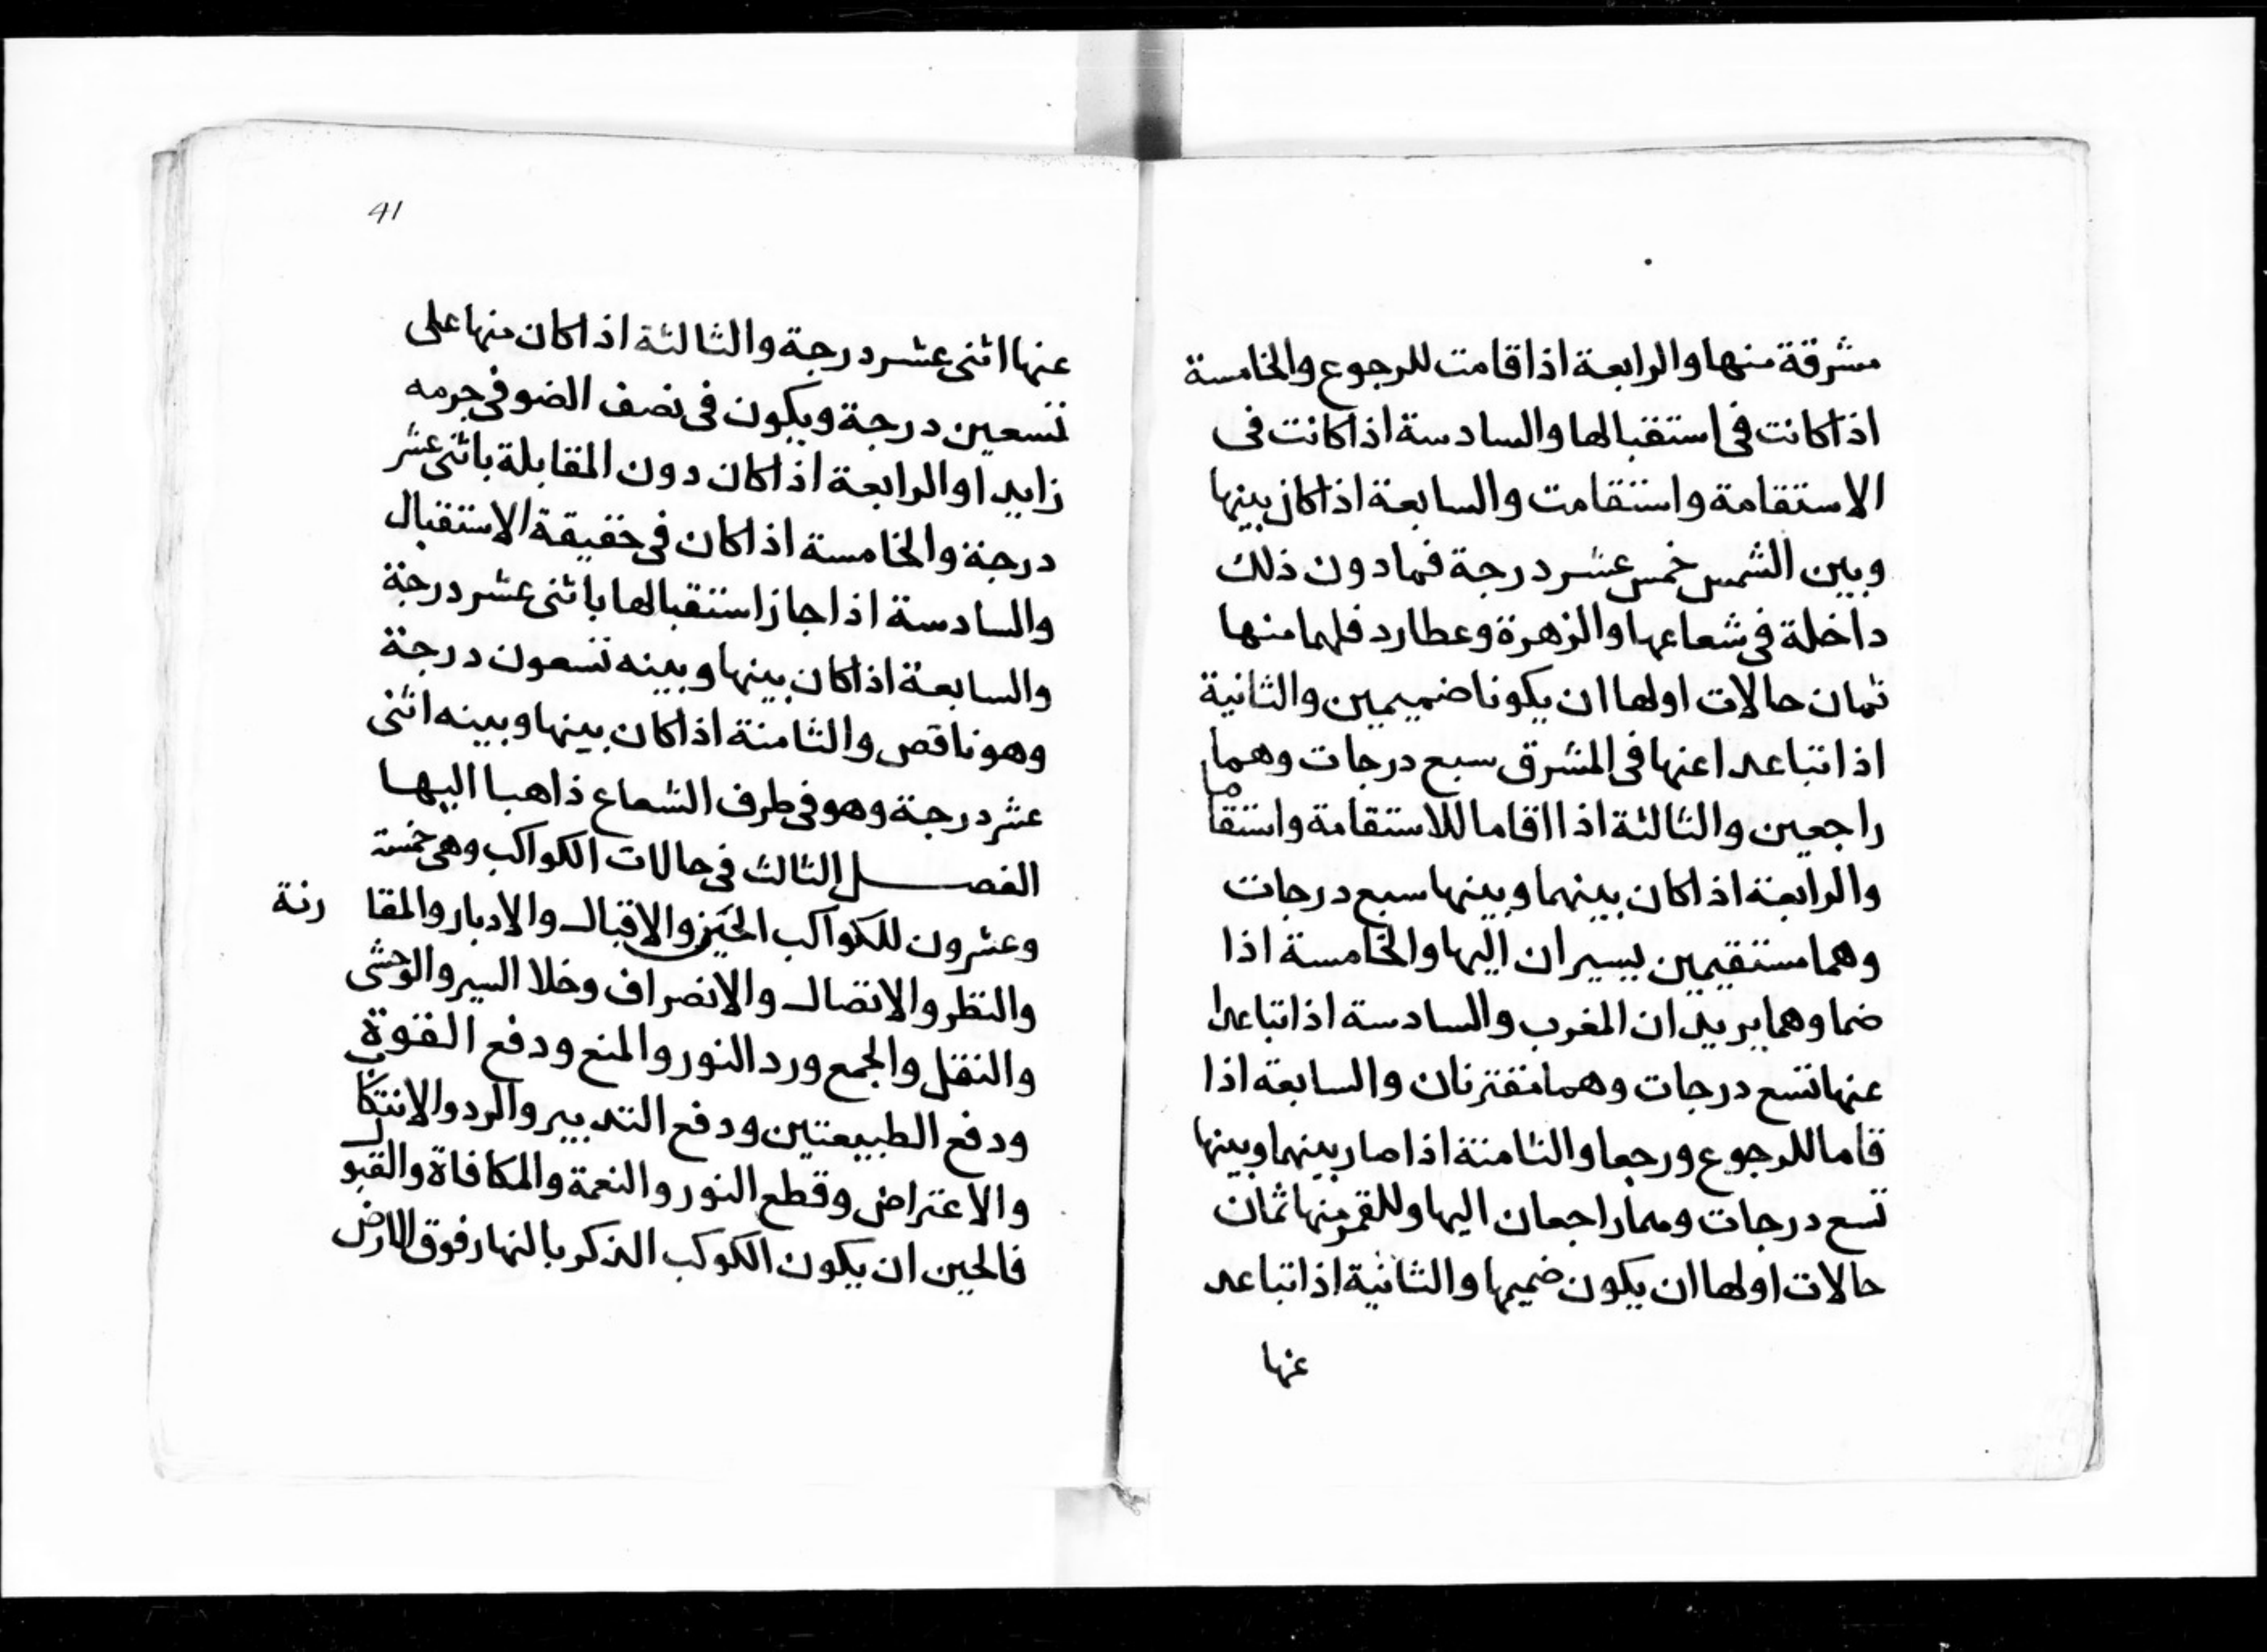 مشرقة منها والرابعة اذا قامت للرجوع والخامسة
اذا كانت في استقبالها والسادسة اذا كانت في
الاستقامة واستقامت والسابعة اذا كان بينها
وبين الشمس خمس عشر درجة فما دون ذلك
داخلة في شعاعها والزهرة وعطارد فلهما منها
ثمان حالات اولها ان يكونا ضميمين والثانية
اذا تباعدا عنها في المشرق سبع درجات وهما
راجعين والثالثة اذا اقاما للاستقامة واستقاما
والرابعة اذا كان بينهما وبينها سبع درجات
وهما مستقيمين يسيران اليها والخامسة اذا
ضما وهما يريدان المغرب والسادسة اذا تباعدا
عنها تسع درجات وهما مقترنان والسابعة اذا
قاما للرجوع ورجعا والثامنة اذا صار بينهما وبينها
تسع درجات وهما راجعان اليها وللقمر منها ثمان
حالات اولها ان يكون ضميمها والثانية اذا تباعد
عنها
41
عنها اثنى عشر درجة والثالثة اذا كان منها على
تسعين درجة ويكون في نصف الضو في جرمه
زايدا والرابعة اذا كان دون المقابلة باثنى عشر
درجة والخامسة اذا كان في حقيقة الاستقبال
والسادسة اذا جاز استقبالها باثنى عشر درجة
والسابعة اذا كان بينها وبينه تسعون درجة
وهو ناقص والثامنة اذا كان بينها وبينه اثنى
عشر درجة وهو في طرف الشعاع ذاهبا اليها
الفصل الثالث في حالات الكواكب وهي خمسة
وعشرون للكواكب الحيز والاقبال والادبار والمقا رنة
والنظر والاتصال والانصراف وخلا السير والوحشي
والنقل والجمع ورد النور والمنع ودفع القوة
ودفع الطبيعتين ودفع التدبير والرد والانتكاث
والاعتراض وقطع النور والنعمة والمكافاة والقبول
فالحين ان يكون الكوكب الذكر بالنهار فوق الارض